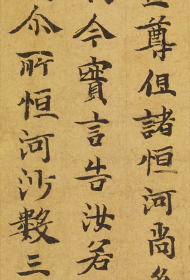 尊但諸恒河尚多
今實言告汝若
尒所恒河沙數三